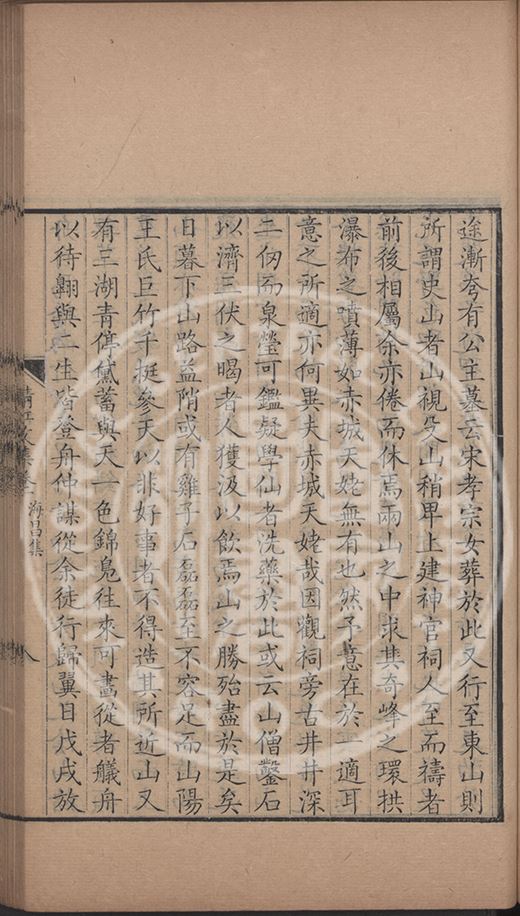 途漸夸有公主墓云宋孝宗女葬於此又行至東山則
所謂史山者山視殳山稍卑上建神官祠人至而禱者
前後相屬余亦倦而休焉兩山之中求其奇峰之環拱
瀑布之噴薄如赤城天姥無有也然予意在於一適耳
意之所適亦何異夫赤城天姥哉因觀祠旁古井井深
三仞而泉瑩可鑑疑學仙者洗藥於此或云山僧鑿石
以濟三伏之暍者人獲汲以飲焉山之勝殆盡於是矣
日暮下山路益陗或有雞子石磊磊至不容足而山陽
王氏巨竹千挺參天以非好事者不得造其所近山又
有三湖青渟黛蓄與天一色錦鳬往來可畫從者艤舟
以待翺與二生皆登舟仲謀從余徒行歸翼日戊戌放
清江文集卷
海昌集
八